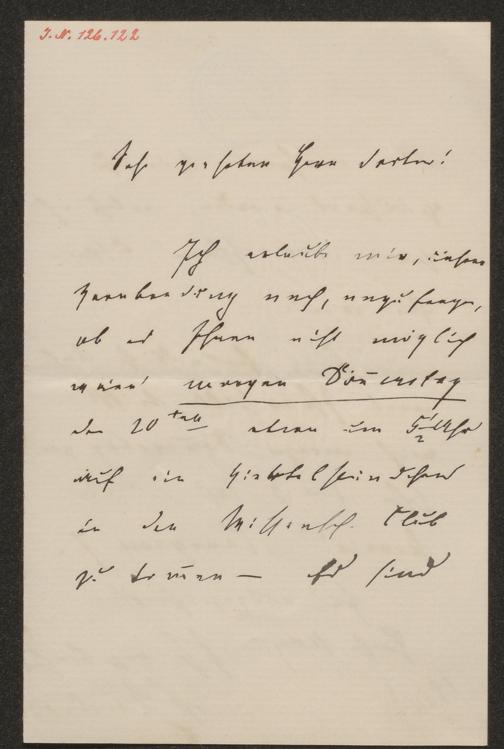 I. N. 126.122
Sehr geehrter Herr Doctor!
Ich erlaube mir, unserer
Verabredung nach, anzufragen,
ob es Ihnen nicht möglich
wäre morgen Donnerstag
den 20ten etwa um 5 1/2 Uhr
auf ein Viertelstündchen
in den Wissensch. Club
zu kommen — Es sind